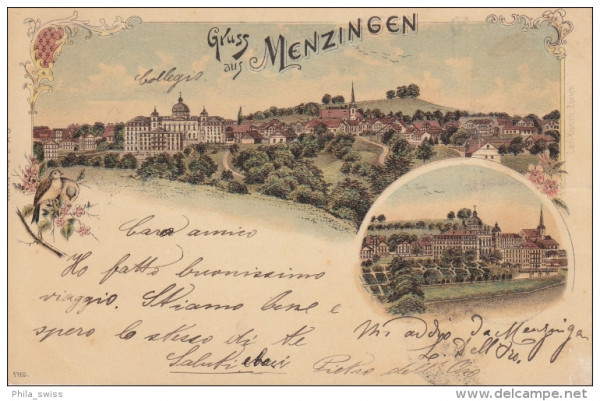 Gruss
aus MENZINGEN
Collegio
Caro amico
Ho fatto buonissimo
viaggio. Stiamo bene e
spero lo stesso di te
Saluti
addio da Menzinga
Pietro dell'
9760.
Phila_swiss
delcampe.net